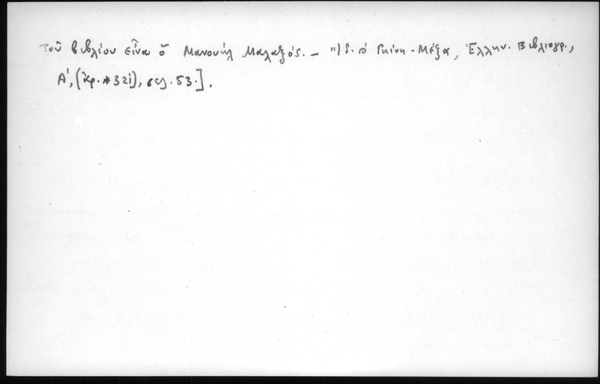 τοῦ βιβλίου εἶναι ὁ Μανουὴλ Μαλαξός. — Ἰδ. Γκίνη - Μέξα, Ἑλλην. Βιβλιογρ.,
Α', [ἀρ. *321], σελ. 53.].